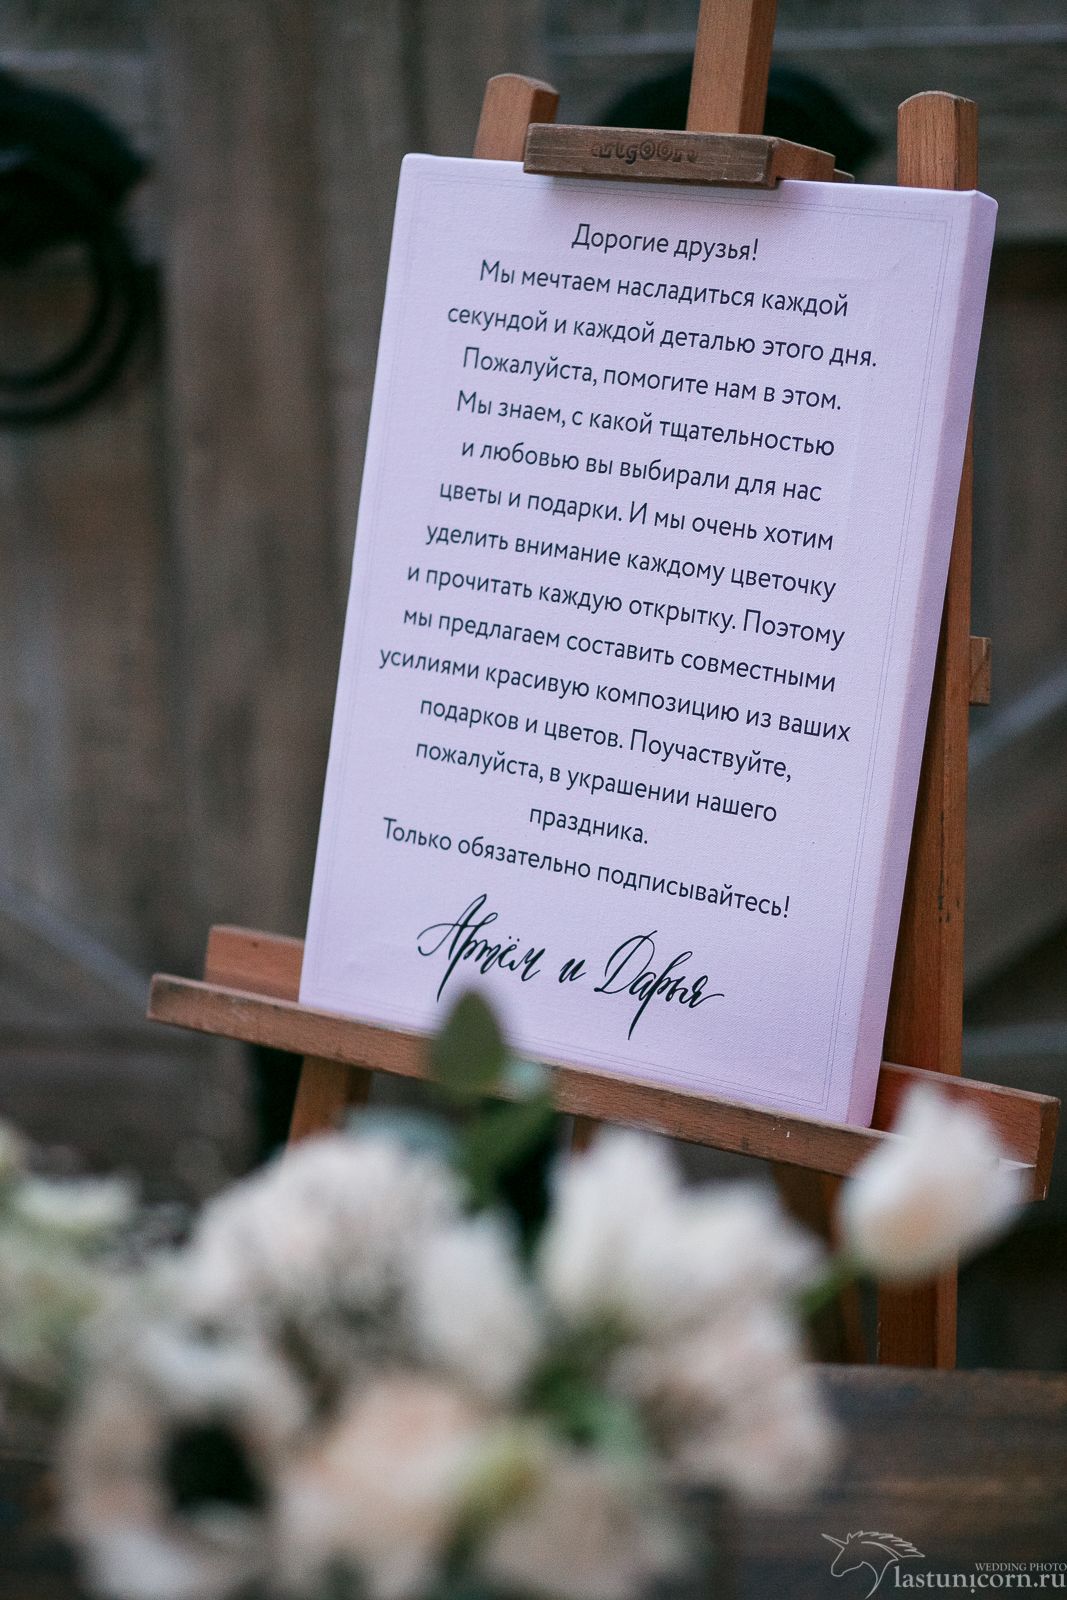 Дорогие друзья!
Мы мечтаем насладиться каждой
секундой и каждой деталью этого дня.
Пожалуйста, помогите нам в этом.
Мы знаем, с какой тщательностью
и любовью вы выбирали для нас
цветы и подарки. И мы очень хотим
уделить внимание каждому цветочку
и прочитать каждую открытку. Поэтому
мы предлагаем составить совместными
усилиями красивую композицию из ваших
подарков и цветов. Поучаствуйте,
пожалуйста, в украшении нашего
праздника.
Только обязательно подписывайтесь!
Артём и Дарья
WEDDING PHOTO
lastunicorn.ru